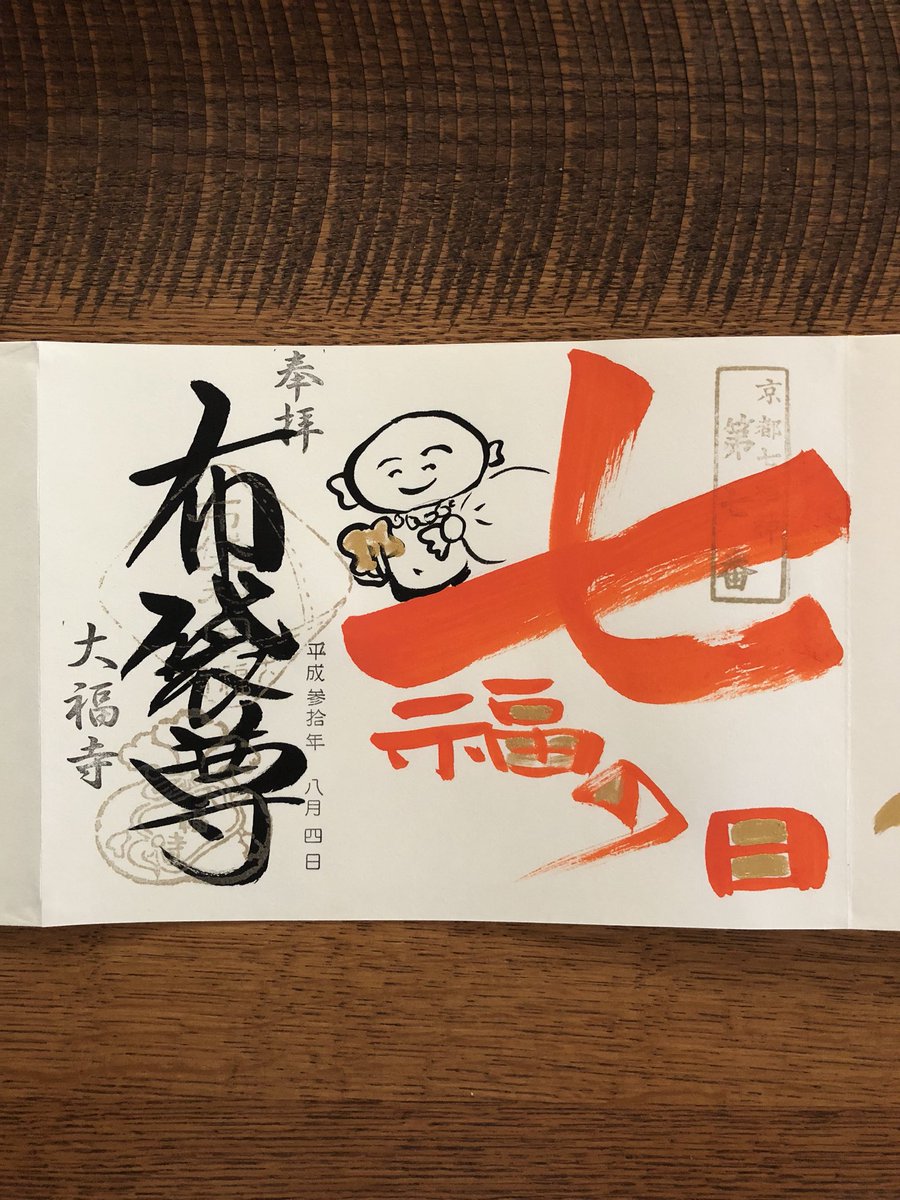 京都七
第 番
七
福の日
奉拝
平成参拾年 八月四日
布袋尊
大福寺